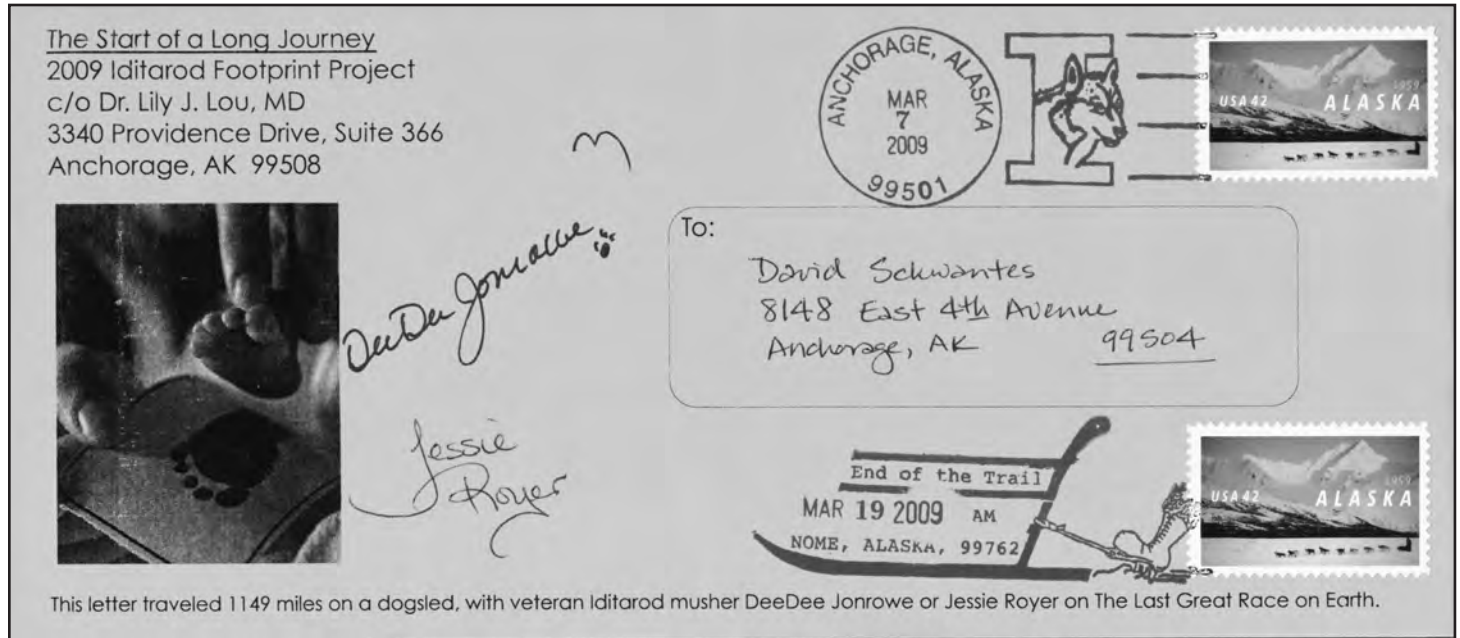 The Start of a Long Journey
2009 Iditarod Footprint Project
c/o Dr. Lily J. Lou, MD
3340 Providence Drive, Suite 366
Anchorage, AK 99508
ANCHORAGE, ALASKA
MAR
7
2009
99501
I
1959
USA 42 ALASKA
DeeDee Jonrowe
Jessie
Royer
To:
David Schwantes
8148 East 4th Avenue
Anchorage, AK 99504
End of the Trail
MAR 19 2009 AM
NOME, ALASKA, 99762
1959
USA 42 ALASKA
This letter traveled 1149 miles on a dogsled, with veteran Iditarod musher DeeDee Jonrowe or Jessie Royer on The Last Great Race on Earth.